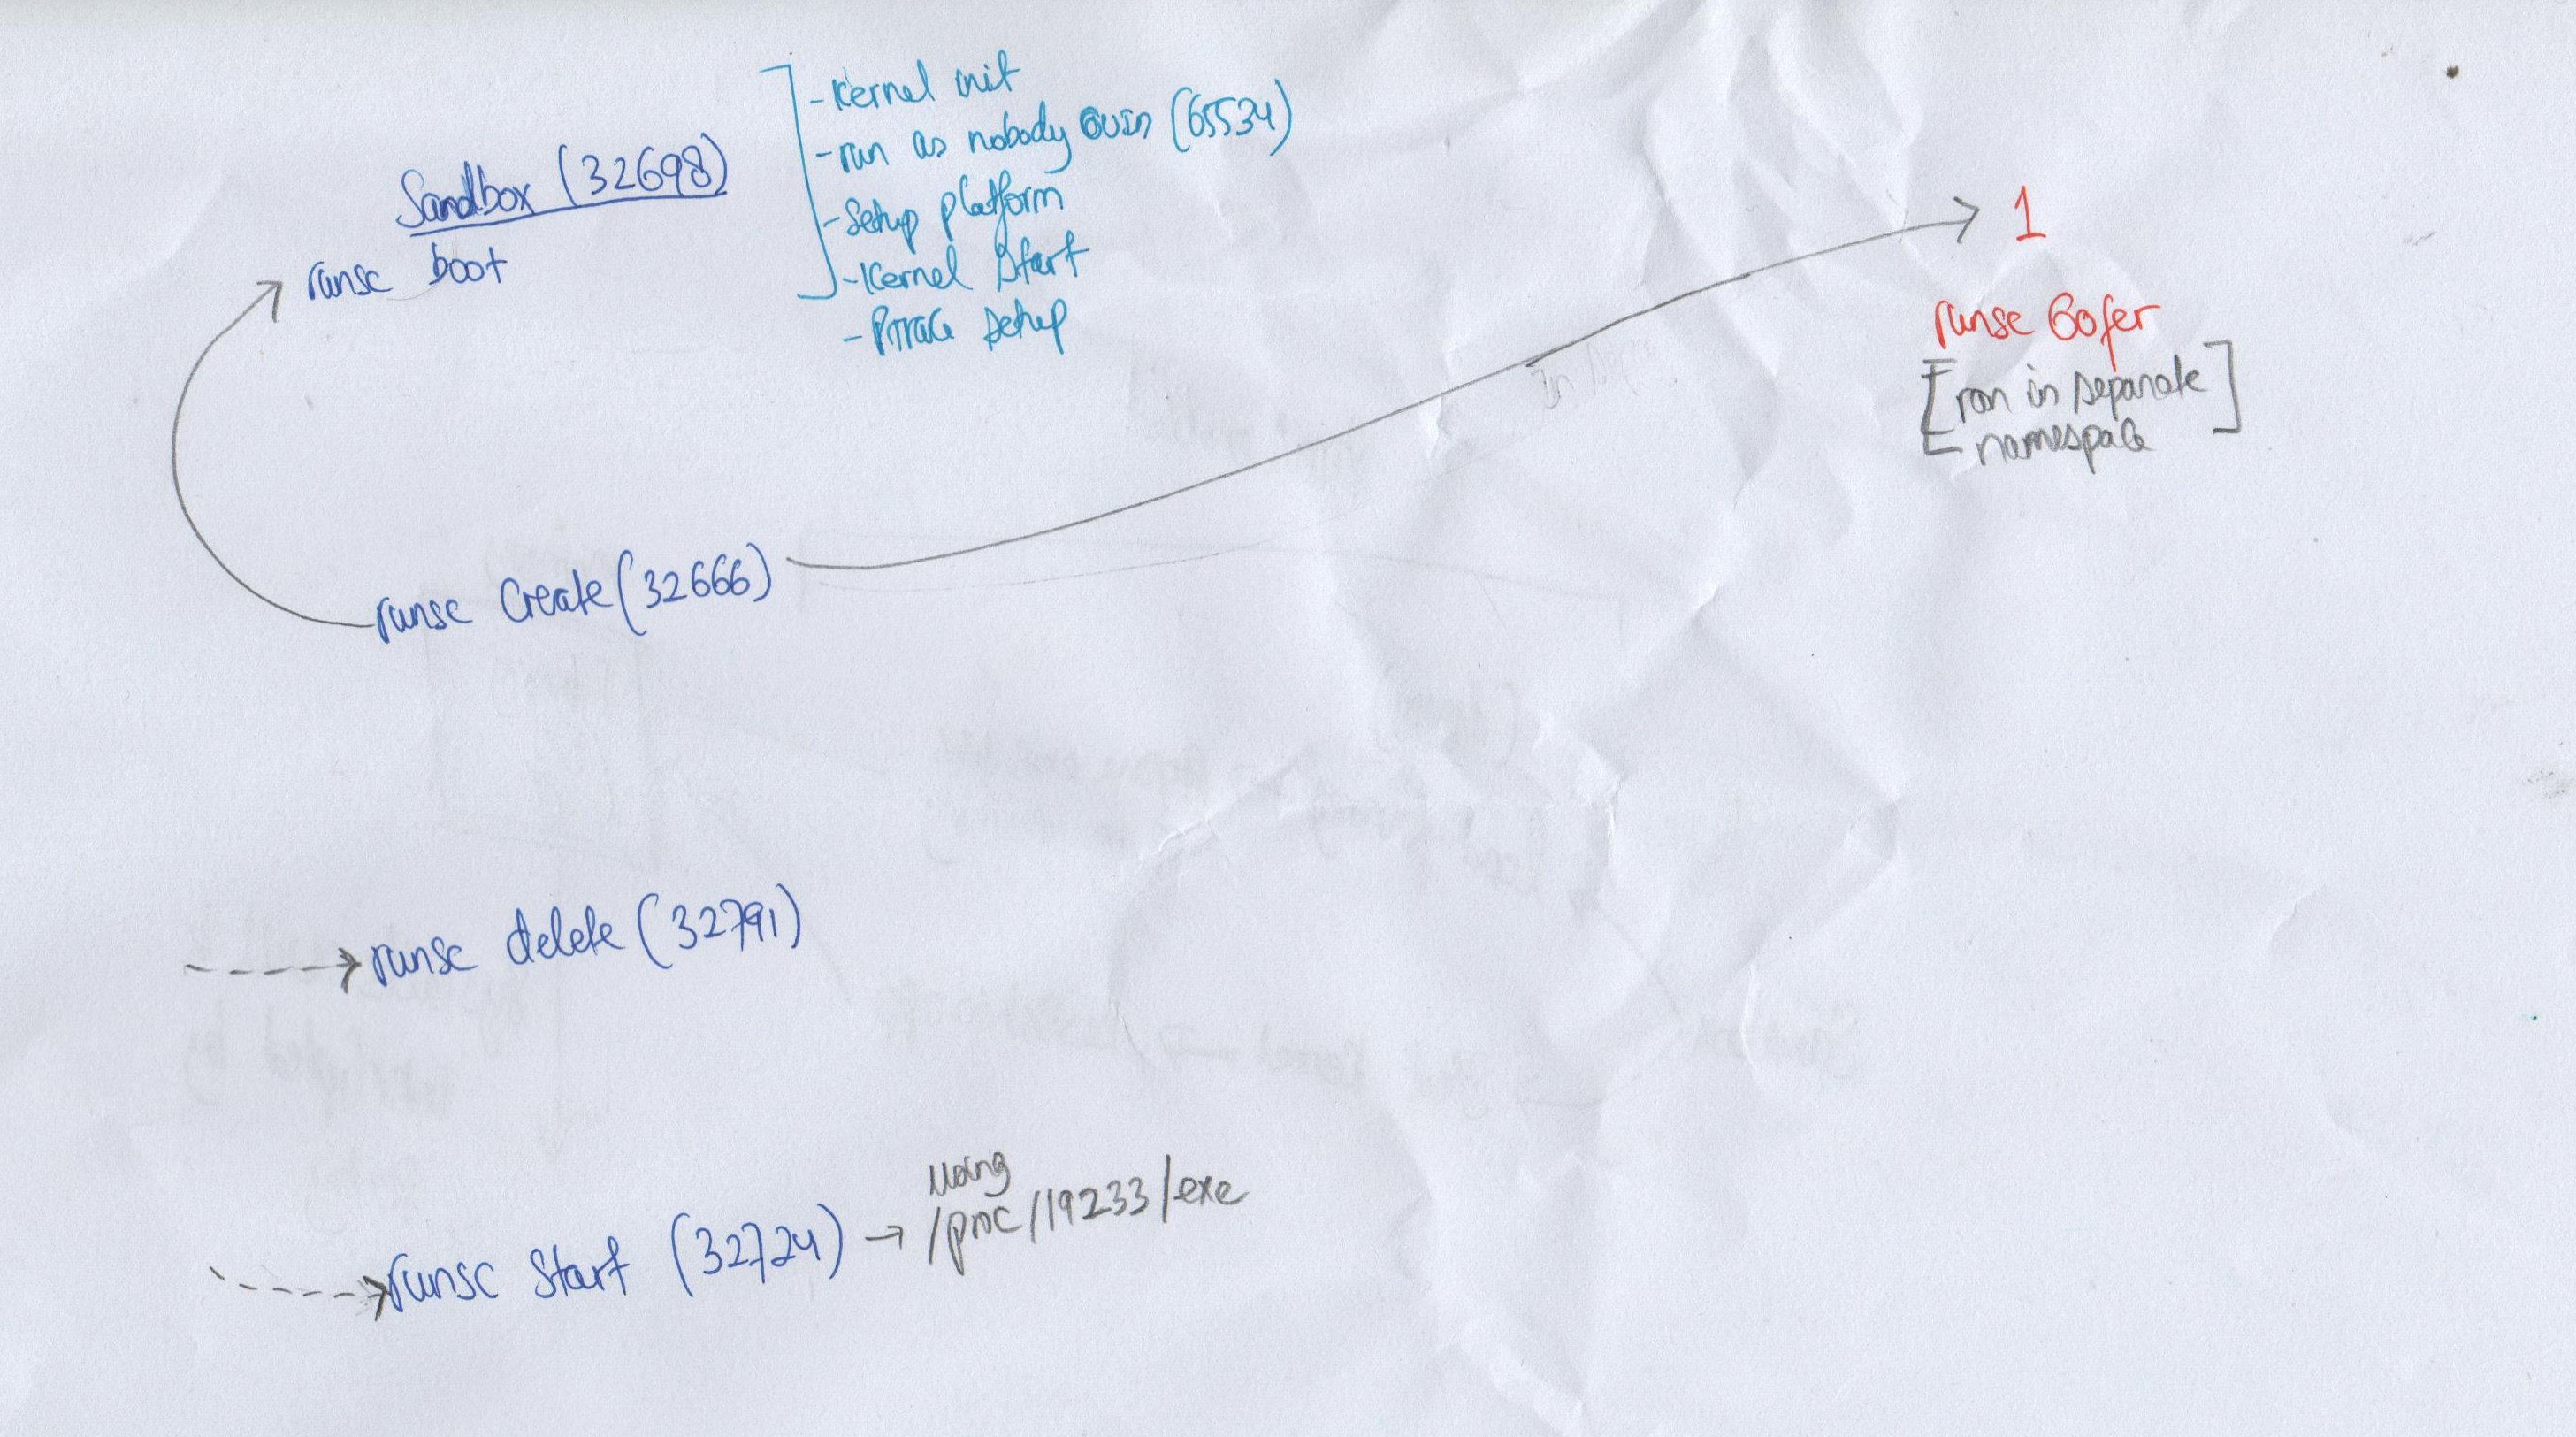 - Kernel init
- run as nobody guid (65534)
- Setup platform
- Kernel Start
- Ptrace setup
Sandbox (32698)
runsc boot
1
runsc Gofer
[run in separate]
namespace
runsc Create (32666)
runsc delete (32791)
runsc Start (32724) → using
/proc/19233/exe